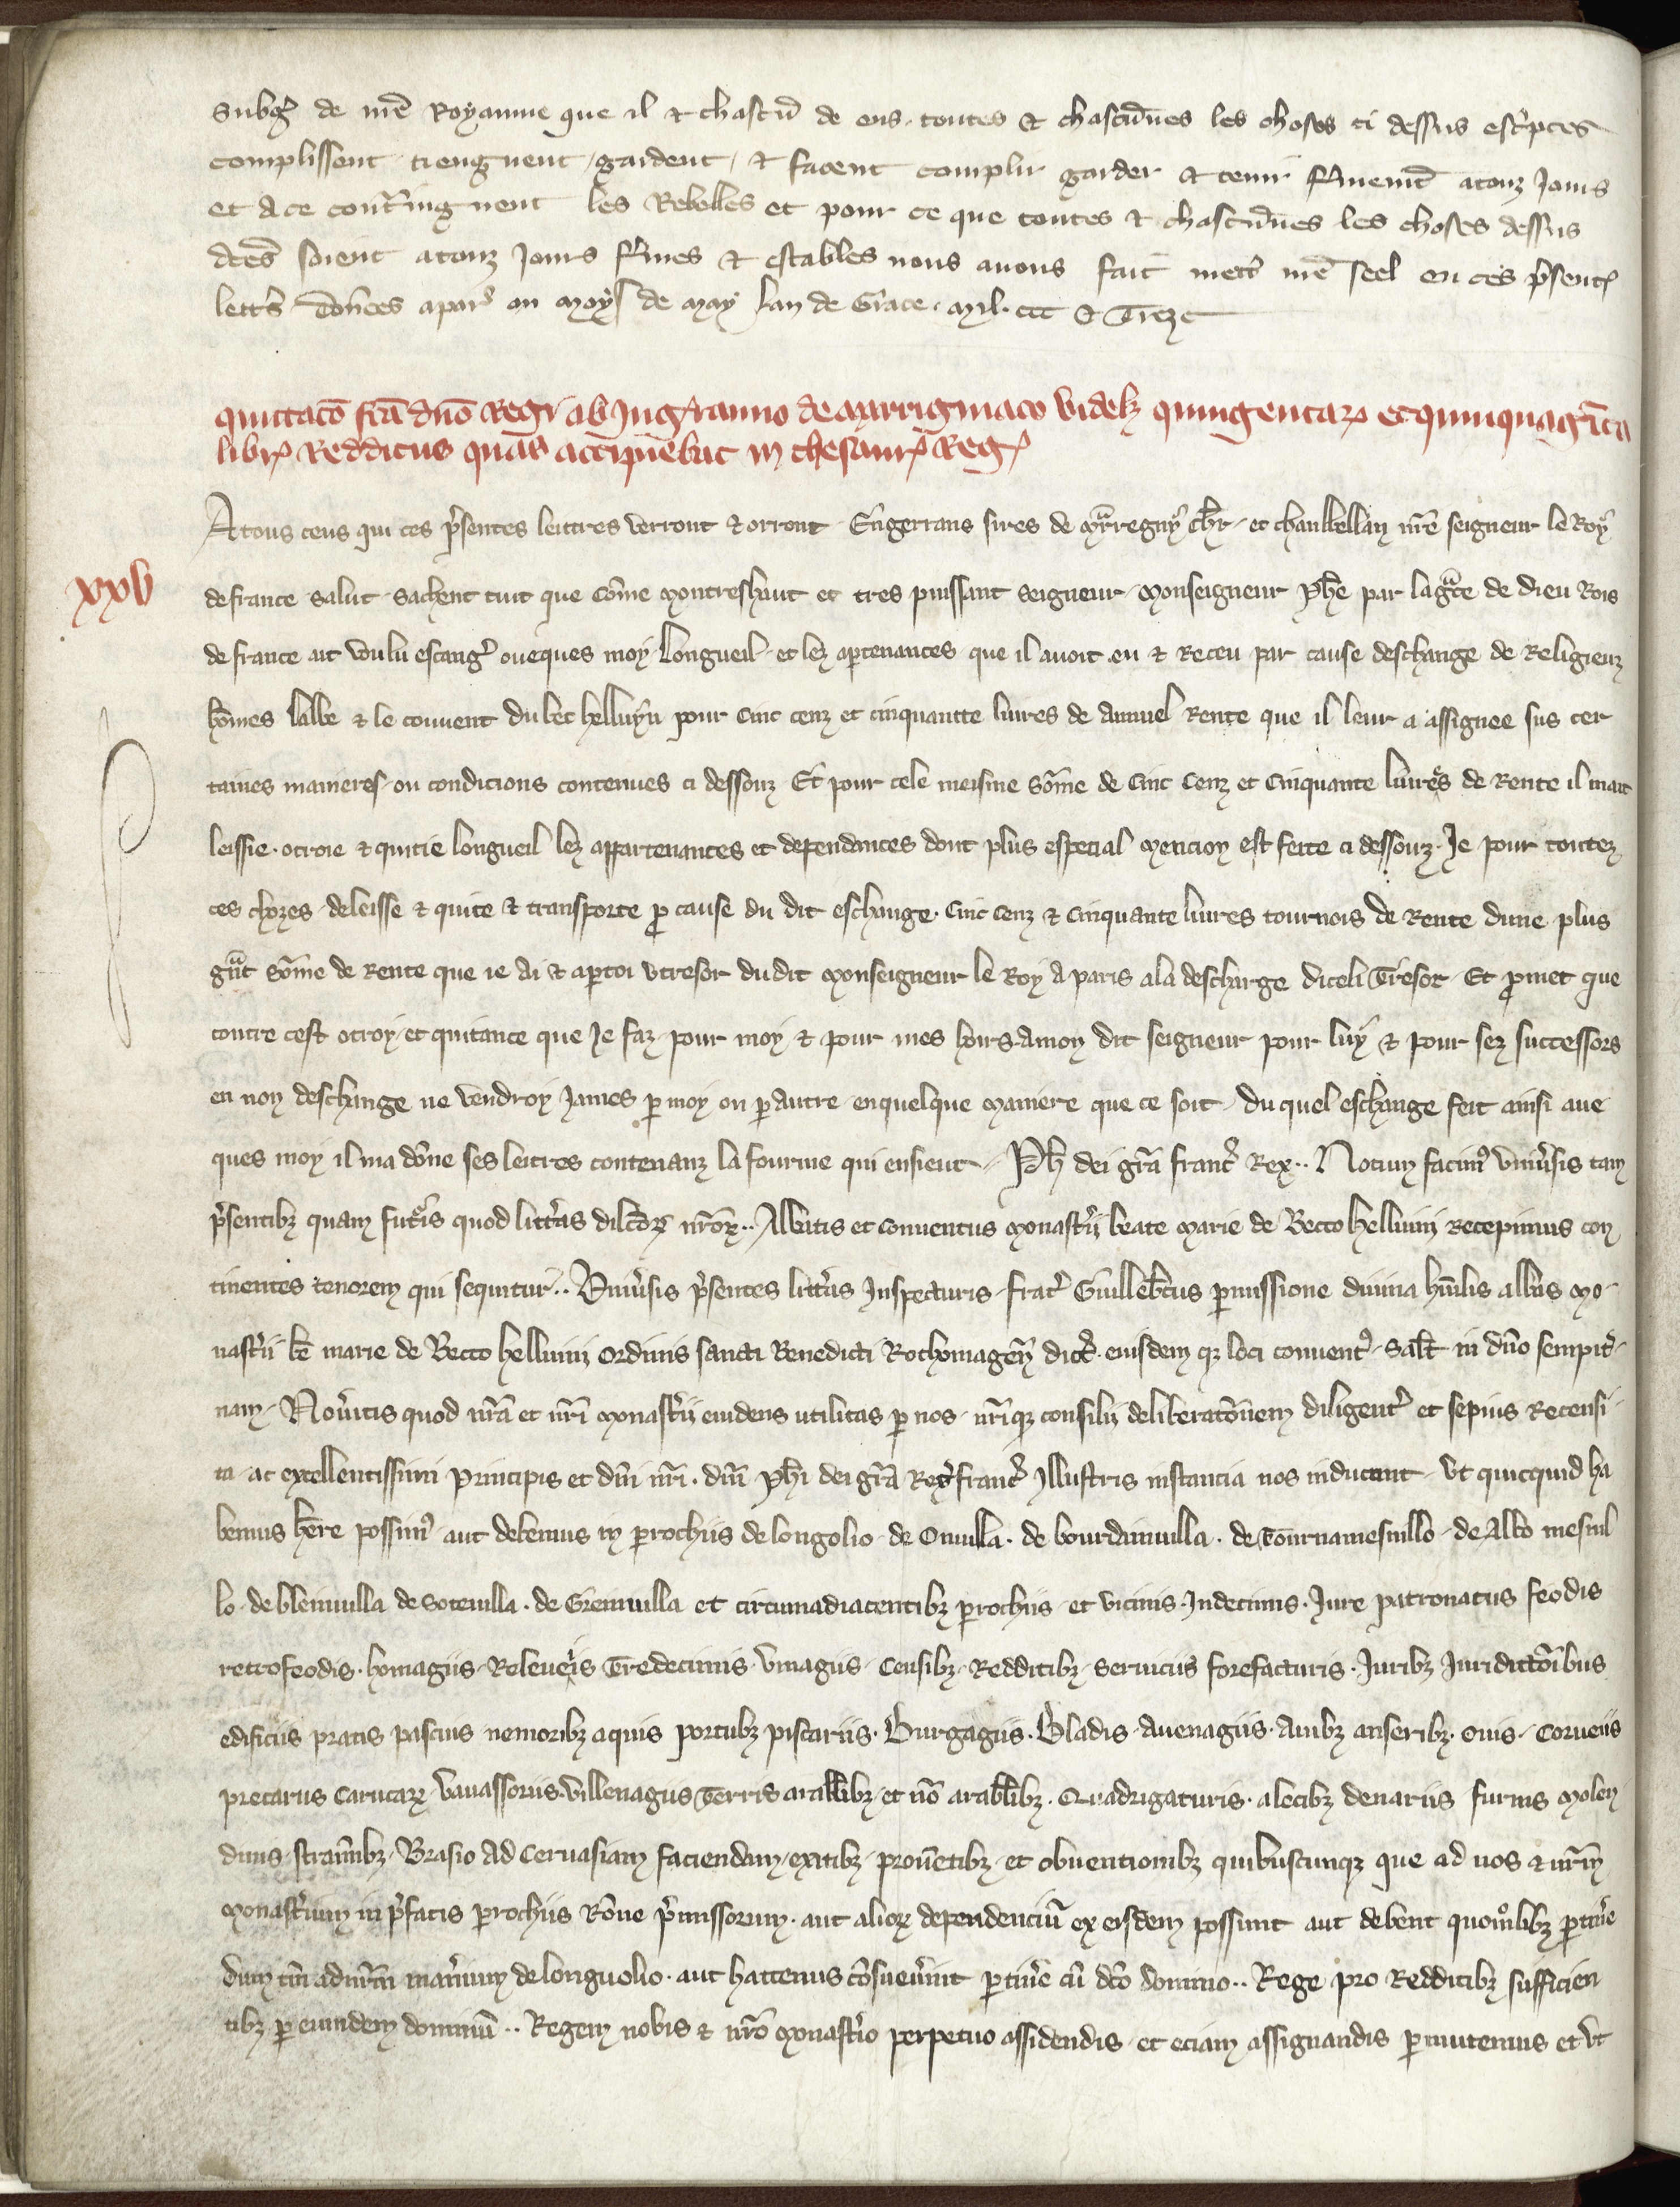 subgz de nr̄e Royaume que il et chascū de eus toutes et chascūnes les choses ci dessus escriptes
complissent tiengnent, gardent, et facent complir garder et tenir fermemt atouz Jours
et ace contraingnent les Rebelles et pour ce que toutes et chascūnes les choses dessus
dc̄es soient atouz Jours fermes et estables nous auons fait mettre nr̄e seel en ces p̄sentes
lettrs donees apar̄ ou moys de may lan de Grace. Mil. ccc et Treze
quittaco fc̄a dno Regi ab Ingeranno de Marrigniaco videlz quingentarꝝ et quinquaginta
librꝝ Redditus quas accipiebat in thesaurꝝ Regꝝ
A tous ceus qui ces p̄sentes leittres verront et orront Engerrans sires de Marregny ch̄r et chanbellan nr̄e seigneur le Roy
xxv
de france salut sachent tuit que cōme Mon treshaut et tres puissant seigneur Monseigneur Ph̄e par la gr̄ce de dieu Rois
de france ait voulu escangr̄ oueques moy Longueil et lez apertenances que il auoit eu et Receu par cause deschange de Religieuz
hōmes labbe et le couuent du bec helluyn pour cinc cenz et cinquantte liures de annuel Rente que il leur a assignee sus cer
taines manieres ou condicions contenues ci dessouz Et pour cele meisme sōme de Cinc Cenz et Cinquante liures de Rente il mait
leissie otroie et quitie longueil lez appartenances et dependances dont plus especial Mencion est feite ci dessouz. Je pour toutez
ces chozes deleisse et quite et transporte p cause du dit eschange. Cinc Cenz et Cinquante liures tournois de Rente dune plus
gr̄nt sōme de Rente que ie ai et apertoi vtresor dudit Monseigneur le Roy a paris ala descharge diceli Tresor Et pmet que
contre cest otroy et quitance que Je faz pour moy et pour mes hoirs amon dit seigneur pour luy et pour sez successors
en non deschange ne vendroy James p moy ou p autre enquelque Maniere que ce soit du quel eschange feit ainsi aue
ques moy il ma dōne ses leitres contenanz la fourme qui ensieut Ph̄ dei gr̄a franc̄ Rex.. Notum facimꝰ vniūsis tam
p̄sentibꝫ quam futris quod litt̄as dilc̄orꝝ nr̄orꝝ.. Abbatis et Conuentus Monast̄ii beate Marie de Becco helluini Recepimus con
tinentes tenorem qui sequitur.. Vniūsis p̄sentes litt̄as Inspecturis frat̄ Guillebt̄us pmissione diuina hūilis abbas Mo
nast̄ii bē marie de Becco helluini Ordinis sancti Benedicti Rothomageñ dioc̄. eiusdem qꝫ loci conuentꝰ salt̄ in dn̄o sempit̄
nam Noūitis quod nr̄a et nr̄i Monast̄ii euidens utilitas p nos nr̄iqꝫ consilii deliberatōnem diligent̄ et sepius Recensi
ta ac excellentissimi Principis et dn̄i nr̄i. dn̄i Ph̄i dei gr̄a Reḡ franc̄ Illustris instancia nos inducunt vt quicquid ha
bemus hēre possimꝰ aut debemus in prochiis de longolio de Omuilla. de bourdainuilla. de Tournamesnillo de Albo mesnil
lo de bleinuilla de Soteuilla. de Greinuilla et circumadiacentibꝫ prochiis et vicinis. Indecimis. Jure patronatus feodis
retrofeodis. homagiis Releueiis Tredecimis vinagiis Censibꝫ Redditibꝫ seruiciis forefacturis. Juribꝫ Juridictōibus
edificiis pratis pascuis nemoribꝫ aquis portubꝫ piscariis. Burgagiis. Bladis auenagiis. Auibꝫ anseribꝫ. ouis Corueiis
precariis Carucarꝝ Vauassoriis. Villenagiis Terris arabilibꝫ et nō arabilibꝫ. Quadrigaturis. alecibꝫ denariis furnis Molen
dinis straminibꝫ Brasio ad Ceruasiam faciendam exitibꝫ prouētibꝫ et obuentionibꝫ quibuscunqꝫ que ad nos et nr̄m
Monast̄ium in p̄fatis prochiis Rōne p̄missorum. aut aliorꝝ dependenciū ex eisdem possunt aut debent quomōlibꝫ ptin̄e
dum tm̄ ad nr̄m man̄ium de longuolio. aut hactenus cōsueūint ptin̄e cū dc̄o domino.. Rege pro Redditibꝫ sufficien
tibꝫ p eundem dominū.. Regem nobis et nr̄o Monast̄io perpetuo assidendis et eciam assignandis pmutemus et vt